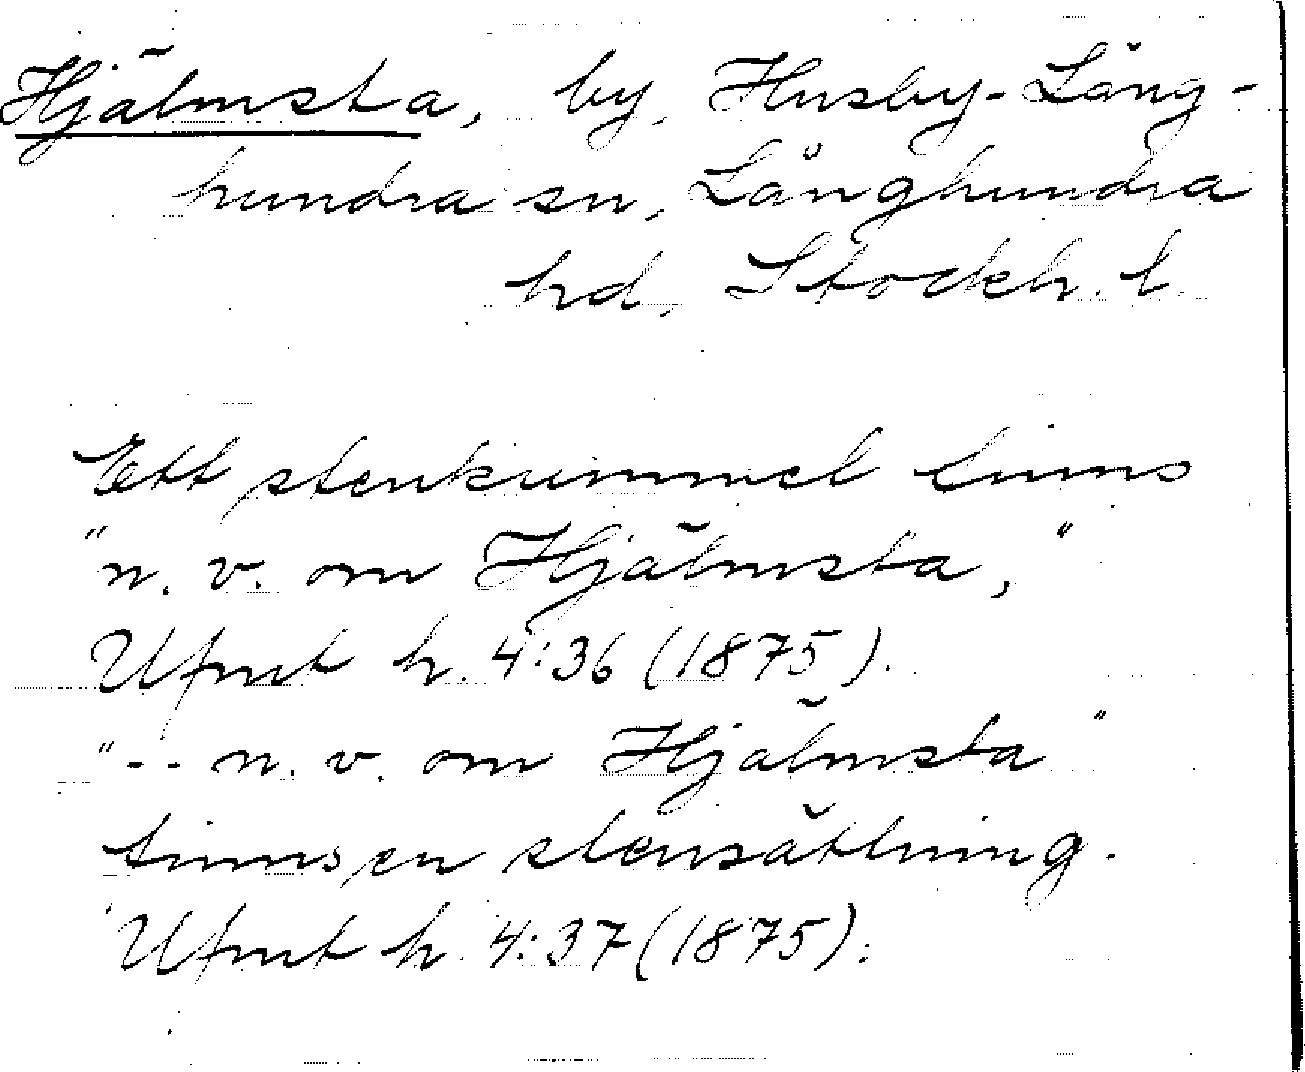 Hjälmsta, by, Husby-Lång-
hundra sn, Långhundra
hd, Stockh. l.
Ett stenkummel finns
"n. v. om Hjälmsta,"
Ufmt h. 4:36 (1875).
"-- n. v. om Hjälmsta"
finns en stensättning.
Ufmt h. 4:37 (1875).